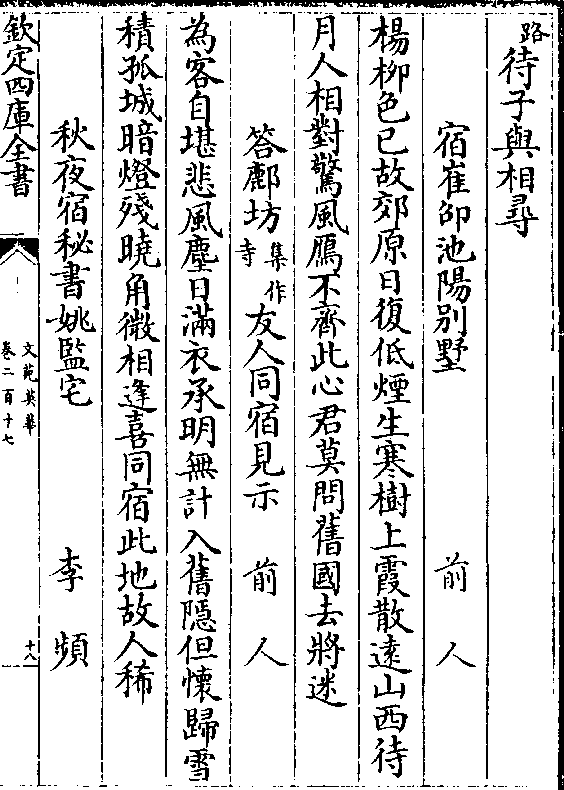 路待子與相尋
宿崔邵池陽别墅 前人
楊柳色已故郊原日復低煙生寒樹上霞散逺山西待
月人相對驚風鴈不齊此心君莫問舊國去將迷
答鄜坊集作寺友人同宿見示 前人
為客自堪悲風塵日滿衣承明無計入舊隱但懐歸雪
積孤城暗燈殘曉角微相逢喜同宿此地故人稀
秋夜宿秘書姚監宅 李頻
欽定四庫全書
文苑英華
卷二百十七
十八